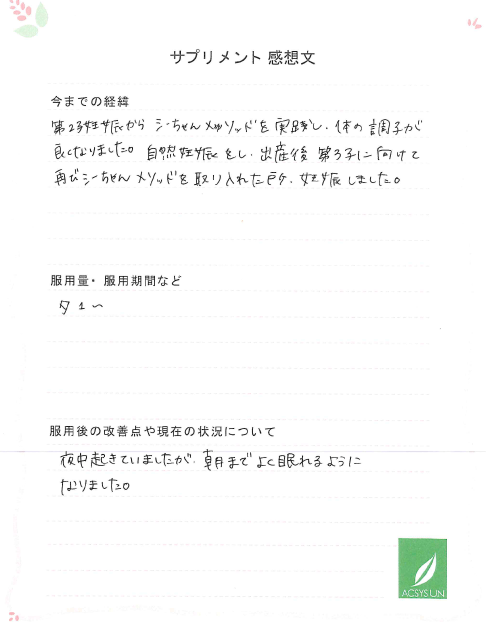 サプリメント 感想文
今までの経緯
第2子妊娠から シーちゃんメソッドを 実践し、体の調子が
良くなりました。自然妊娠をし、出産後 第3子に向けて
再びシーちゃんメソッドを取り入れた所、妊娠しました。
服用量・服用期間など
夕1〜
服用後の改善点や現在の状況について
夜中起きていましたが、朝までよく眠れるように
なりました。
ACSYSUN